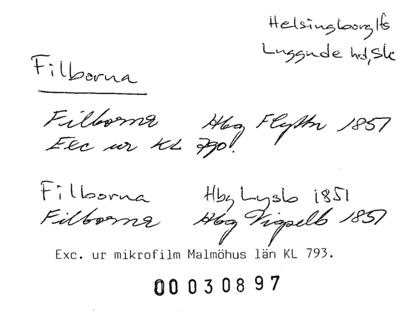 Helsingborg lfs
Luggude hd, Sk
Filborna
Filborna Hbg Flyttn 1851
Exc ur KL 790.
Filborna Hbg Lysb 1851
Filborna Hbg Vigselb 1851
Exc. ur mikrofilm Malmöhus län KL 793.
00030897